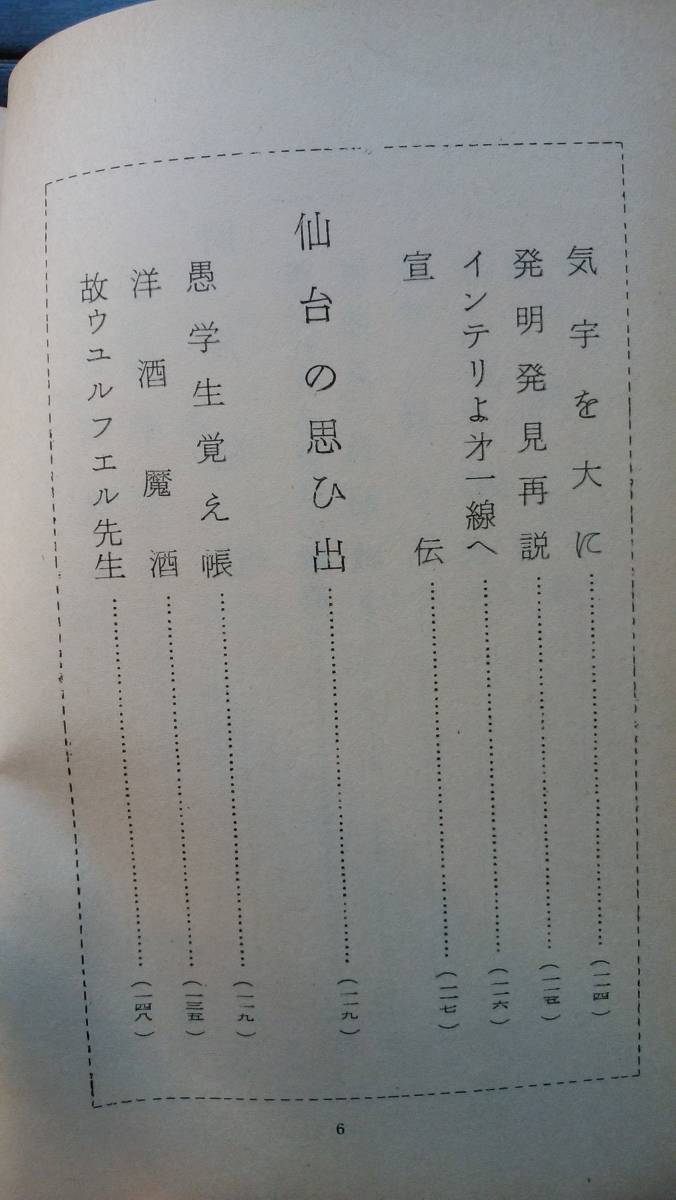 気宇を大に……………………(一一四)
発明発見再説……………………(一一五)
インテリよ㐧一線へ……………………(一一六)
宣伝……………………(一一七)
仙台の思ひ出……………………(一一九)
愚学生覚え帳……………………(一一九)
洋酒魔酒……………………(一三五)
故ウユルフエル先生……………………(一四八)
6